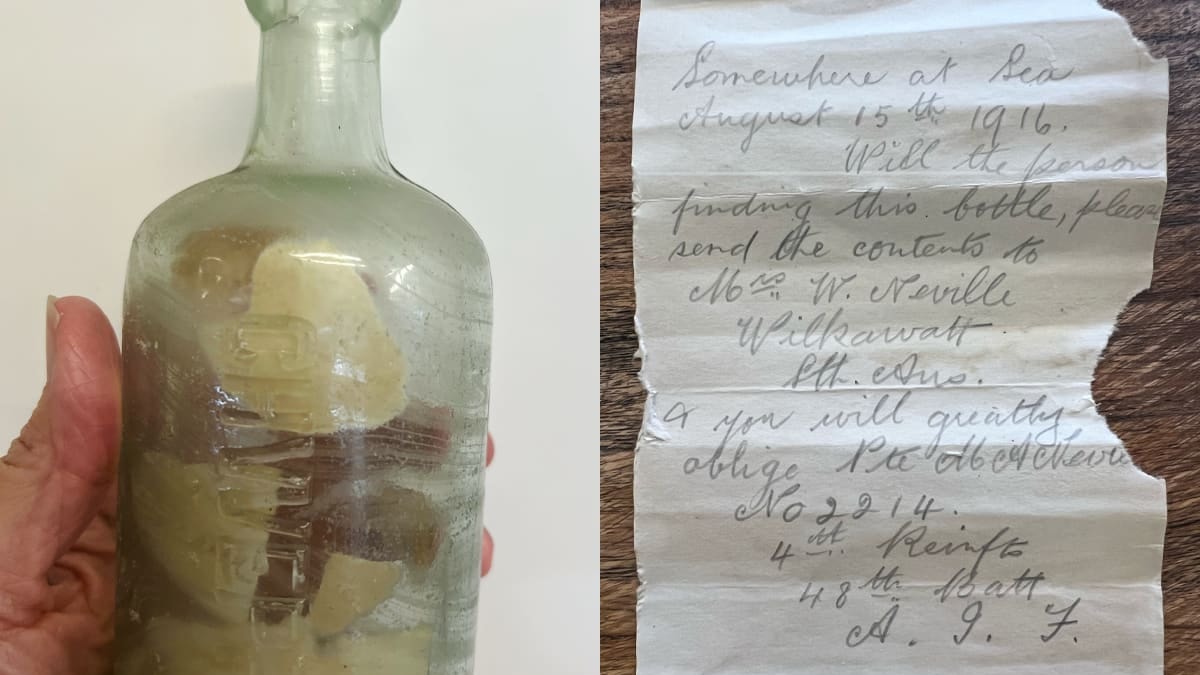 Somewhere at Sea
August 15th 1916.
Will the person
finding this bottle, pleas
send the contents to
Mrs W. Neville
Wilkawatt
Sth. Aus.
& you will greatly
oblige Pte M A Nevil
No 2214.
4th Reinfts
48th Batt
A. I. F.